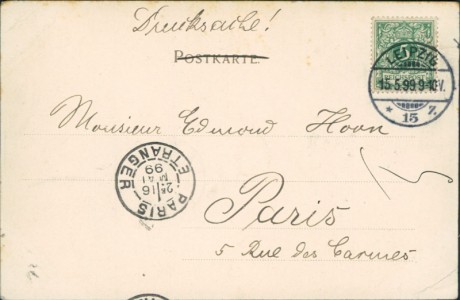 Drucksache!
POSTKARTE.
5
LEIPZIG
15.5.99.9-10V.
* 15 z.
Monsieur Edmond Hoon
PARIS ETRANGER
16
MAI
99
Paris
5 Rue des Carmes